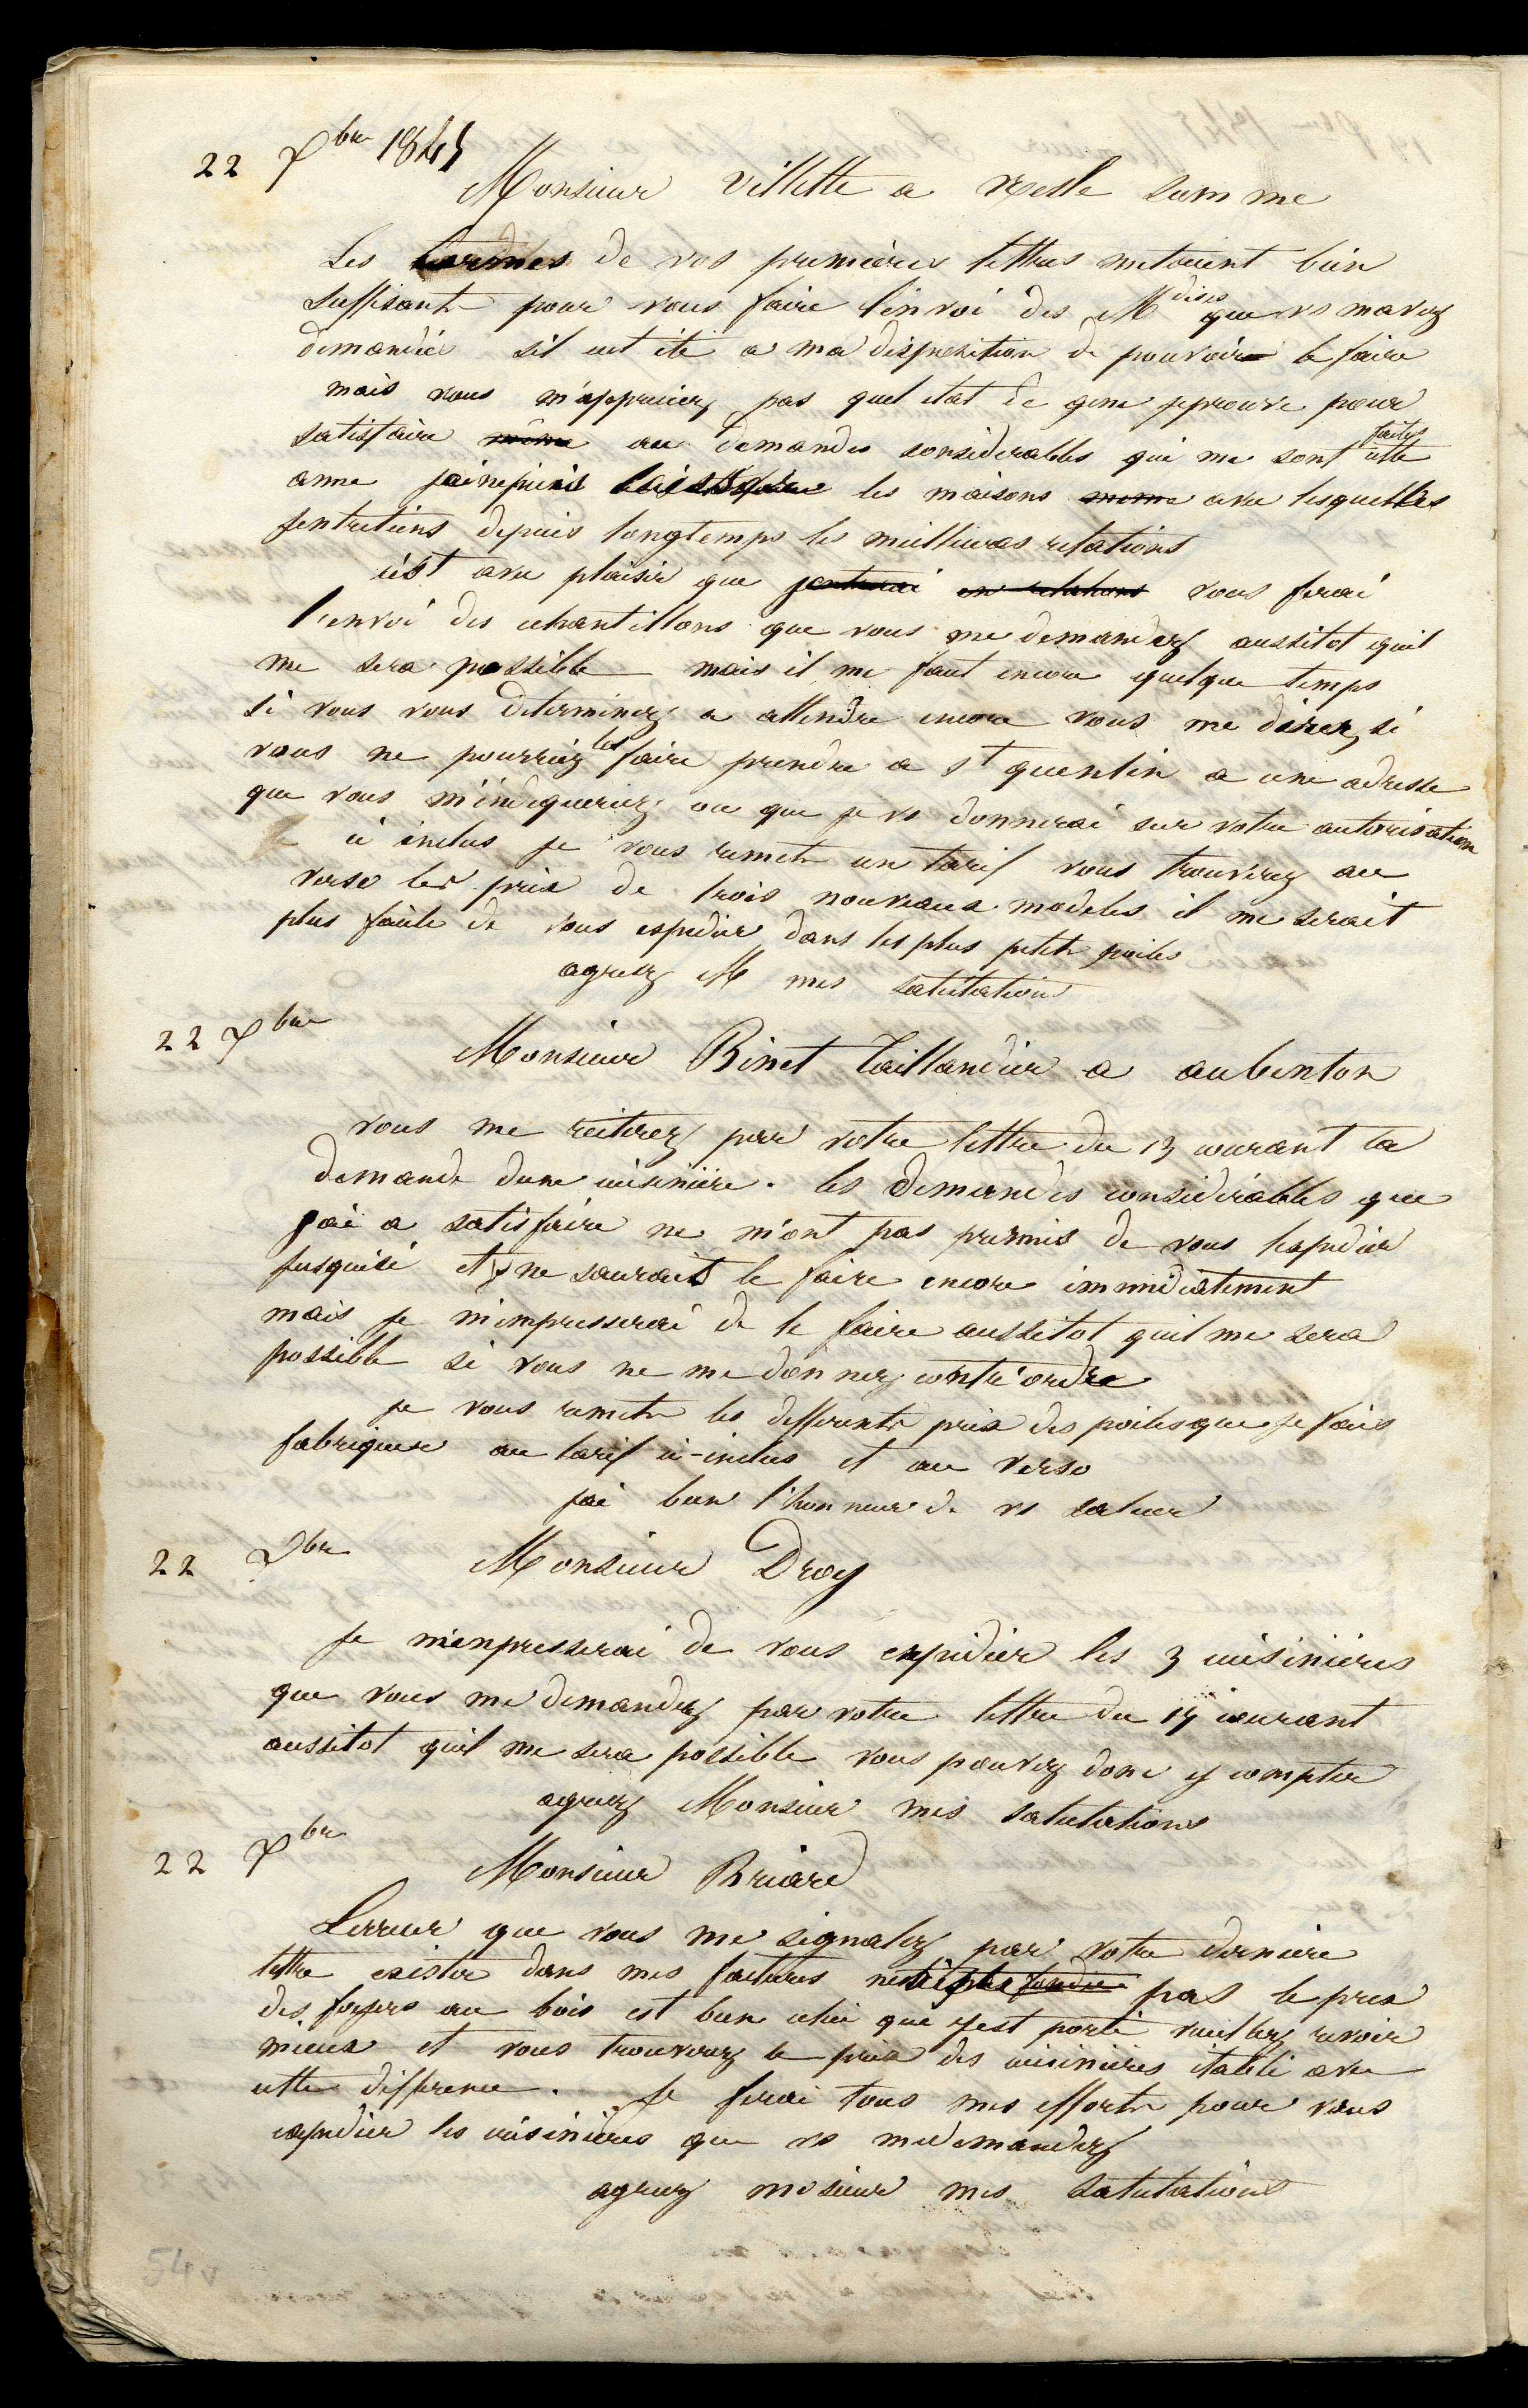 22 7bre 1845
Monsieur Villette a Nesle Somme
Les termes de vos premieres lettres metaient bien
suffisants pour vous faire l'envoi des Mdises que vs mavez
demandées sil eut été a ma disposition de pouvoir le faire
mais vous n'appreciez pas quel etat de gene jeprouve pour
satisfaire même aux demandes considerables qui me sont faites cette
anne les maisons même avec lesquelles
jentretiens depuis longtemps les meilleures relations
c'est avec plaisir que jentrerai en relations vous ferai
l'envoi des echantillons que vous me demandez aussitot quil
me sera possible mais il me faut encore quelque temps
si vous vous determinez a attendre encore vous me direz si
vous ne pourriez les faire prendre a St quentin a une adresse
que vous m'indiqueriez ou que je vs donnerai sur votre autorisation
ci inclus je vous remets un tarif vous trouverez au
verso les prix de trois nouveaux modeles il me serait
plus facile de vous expedier dans les plus petits poiles
agreez M mes salutations
22 7bre
Monsieur Binet Taillandier a aubenton
vous me reiterez par votre lettre du 13 courant la
demande dune cuisinière. les demandes considérables que
jai a satisfaire ne m'ont pas permis de vous lexpedier
jusquici et je ne saurais le faire encore immédiatement
mais je m'empresserai de le faire aussitot quil me sera
possible si vous ne me donnez contr'ordre
je vous remets les differents prix des poiles que je fais
fabriquer au tarif ci-inclus et au verso
jai bien l'honneur de vs saluer
22 7bre
Monsieur Droy
Je m'enpresserai de vous expédier les 3 cuisinières
que vous me demandez par votre lettre du 14 courant
aussitot quil me sera possible vous pouvez donc y compter
agreez Monsieur mes salutations
22 7bre
Monsieur Briard
Lerreur que vous me signalez par votre derniere
lettre exister dans mes factures pas le prix
des foyers au bois est bien celui qui y est porté veuillez revoir
mieux et vous trouverez le prix des cuisinières etabli avec
cette difference. Je ferai tous mes efforts pour vous
expedier les cuisinières que vs me demandez
agreez mosieur mes salutations
54v